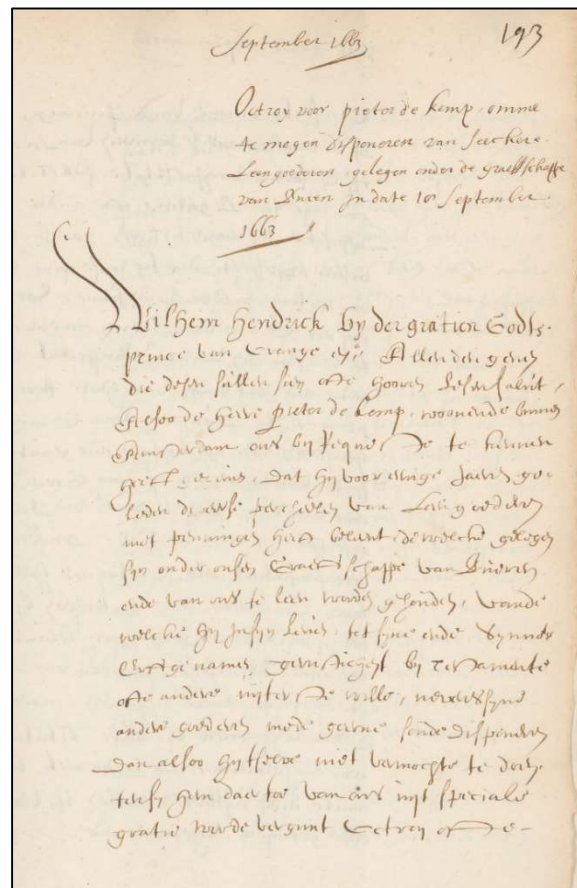 September 1663
193
Octroy voor pieter de kemp omme
te mogen disponeren van seeckere
Leengoederen gelegen onder de graeffschappe
van Buren in date 10 September
1663
Wilhem Hendrick by der gratien Godts
prince van Orange etc. Allen den genen
die desen sullen sien ofte hooren lesen salut,
Alsoo de Heere Pieter de Kemp, woonende binnen
Amsterdam ons by requeste te kennen
heeft gegeven, dat hy voor eenige jaeren ge-
leden diversse perceelen van Leengoederen
met penningen heeft beleent de welcke gelegen
syn onder onsen Graeffschappe van Bueren
ende van ons te leen worden gehouden, vande
welcke hy in syn leven, tot syne ende synner
Erffgenamen gerusticheyt by Testamente
ofte andere uyterste wille, nevens syne
andere goederen mede geerne soude disponeren
Dan alsoo hy tselve niet vermochte te doen
tensy hem daer toe van ons uyt speciale
gratie werde vergunt Octroy ofte